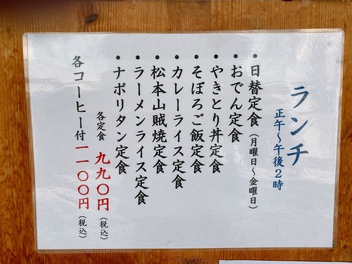 ランチ
正午〜午後2時
・日替定食(月曜日〜金曜日)
・おでん定食
・やきとり丼定食
・そぼろご飯定食
・カレーライス定食
・松本山賊焼定食
・ラーメンライス定食
・ナポリタン定食
各定食 九九〇円(税込)
各コーヒー付 一一〇〇円(税込)